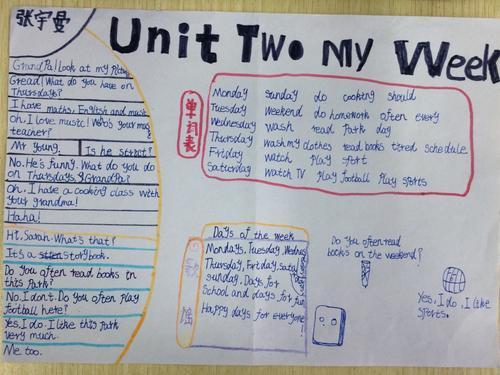 张宇曼
Unit Two My Week
Grandpa! Look at my
Great! What do you have on
Thursdays?
I have maths, English and music
Oh, I love music! Who's your
teacher?
Mr Young.
Is he strict?
No. He's funny. What do you do
on Thursdays, Grandpa?
Oh, I have a cooking class with
your grandma!
Haha!
Hi, Sarah. What's that?
It's a storybook.
Do you often read books in
this park?
No. I don't. Do you often play
football here?
Yes, I do. I like this park
very much.
Me too.
单词表
Monday sunday do cooking should
Tuesday weekend do homework often every
Wednesday wash read Park day
Thursday wash my clothes read books tired schedule
Friday watch Play sport
Saturday watch TV Play football Play sports
Days of the week
Mondays, Tuesday, Wednes
Thursday, Friday, Satur
sunday. Days for
School and days for fun
Happy days for everyone!
Do you often read
books on the weekend?
Yes, I do. I like
sports.